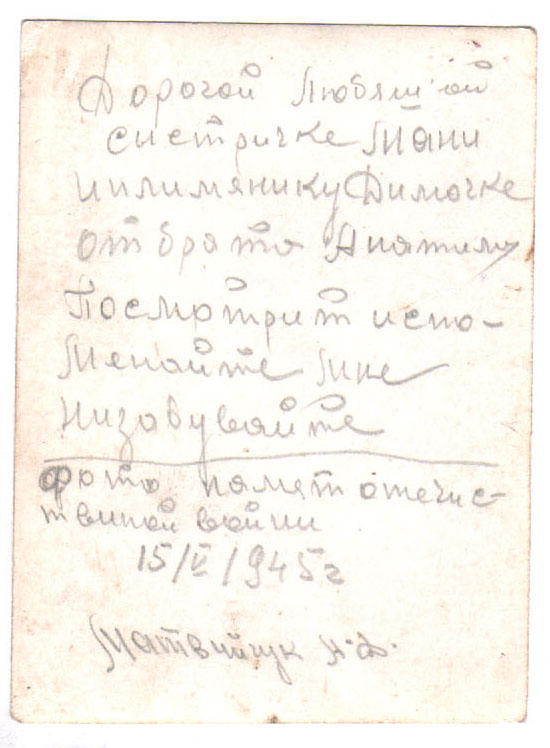 Дорогой любяш'ой
систричке Мани
иплимянику Димочке
от брата Анатилу
Посмотрит испо-
менайте мне
низабувайте
фото памят отечис-
твиной войни
15/V/1945г
Матвийчук А.Ф.